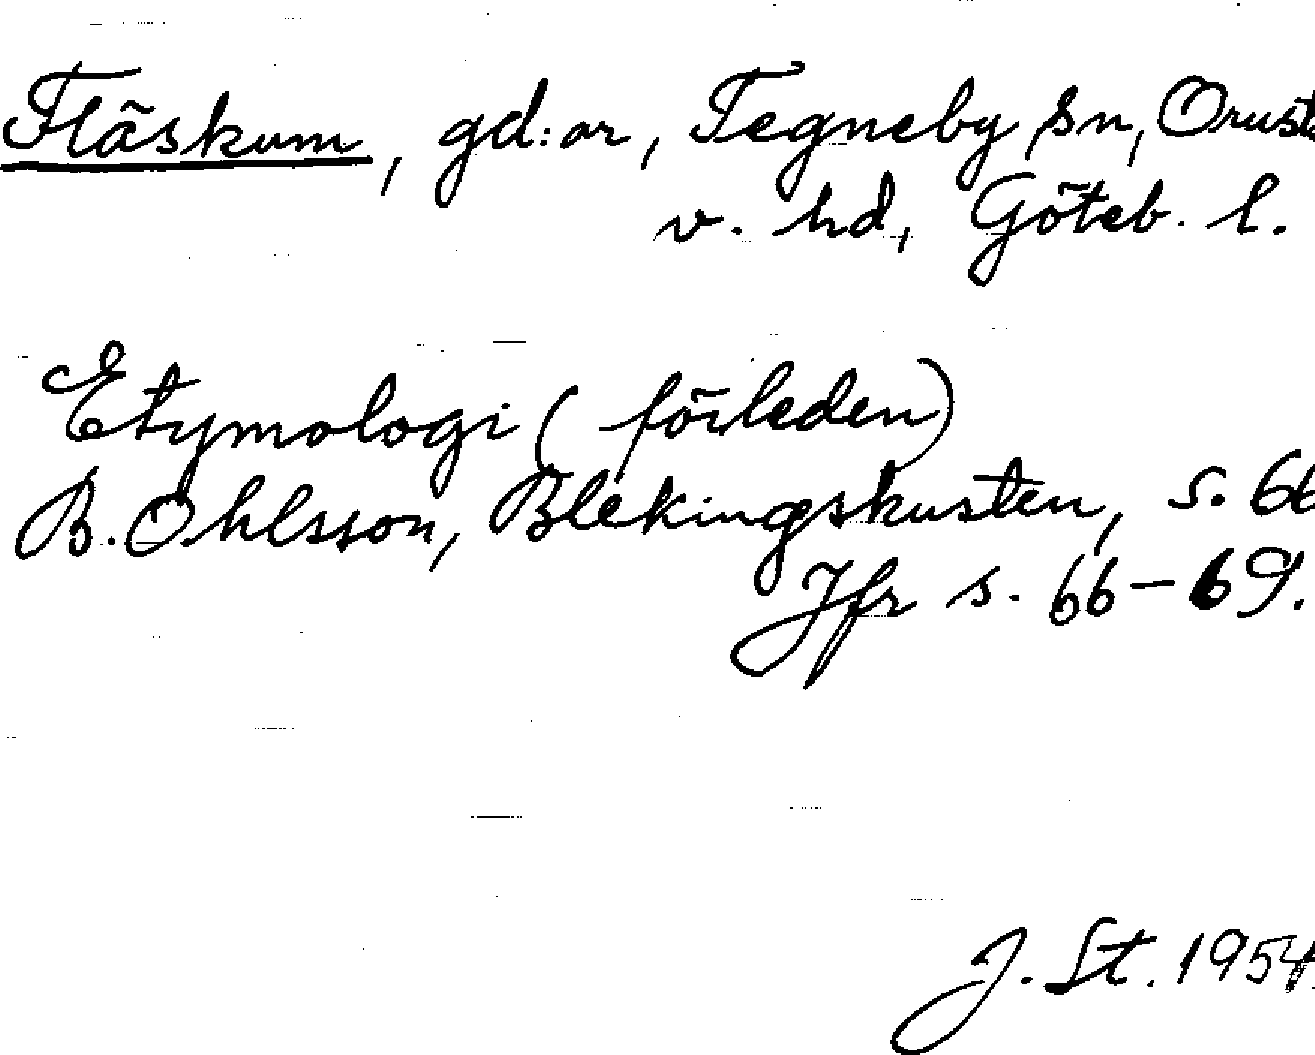 Fläskum, gd:ar, Tegneby sn, Orusts
v. hd, Göteb. l.
Etymologi (förleden)
B. Ohlsson, Blekingskusten, s. 66
Jfr s. 66-69.
J. St. 1954.